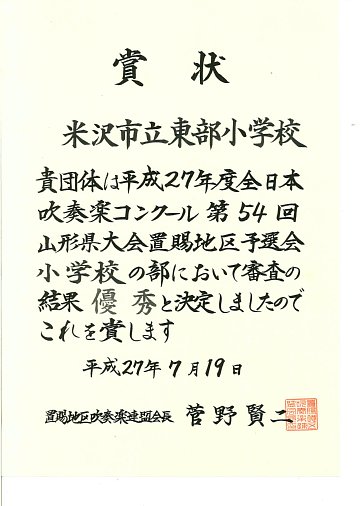 賞状
米沢市立東部小学校
貴団体は平成27年度全日本
吹奏楽コンクール第54回
山形県大会置賜地区予選会
小学校の部において審査の
結果優秀と決定しましたので
これを賞します
平成27年7月19日
置賜地区吹奏楽連盟会長 菅野賢二